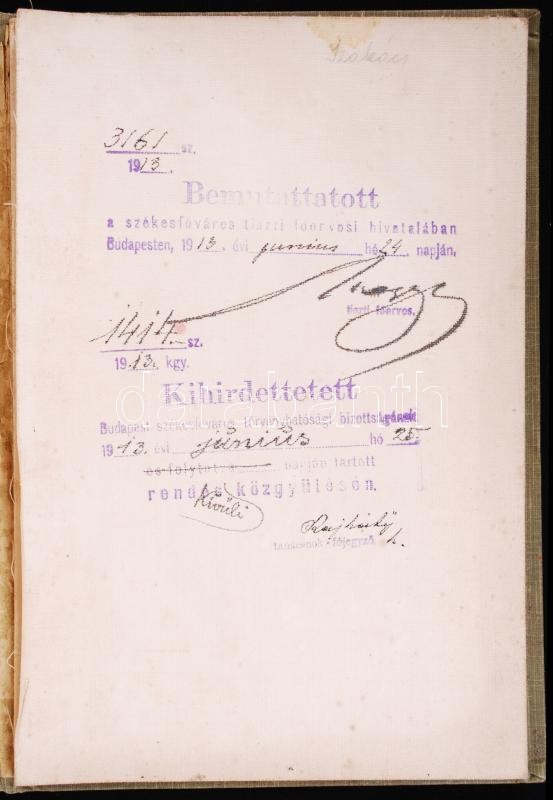 Szakács
3161 sz.
1913.
Bemutattatott
a székesfőváros tiszti főorvosi hivatalában
Budapesten, 1913. évi junius hó 24 napján,
tiszti főorvos.
1414. sz.
1913. kgy.
darabanth
Kihirdettetett
Budapest székesfőváros törvényhatósági bizottságának
1913. évi június hó 25.
és folytatva napján tartott
rendes közgyűlésén.
kívüli
tanácsnok - főjegyző
h.